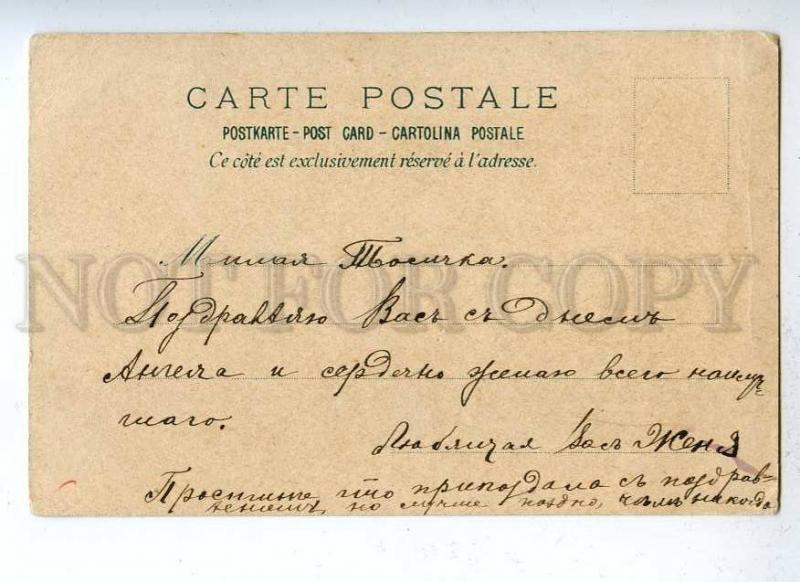 CARTE POSTALE
POSTKARTE - POST CARD - CARTOLINA POSTALE
Ce côté est exclusivement réservé à l'adresse.
Милая Тосичка.
NOT FOR COPY
Поздравляю Васъ съ днемъ
Ангела и сердечно желаю всего наилуч-
шаго.
Любящая Васъ Женя
Простите что припоздала съ поздрав-
леніемъ, но лучше поздно, чѣмъ никогда